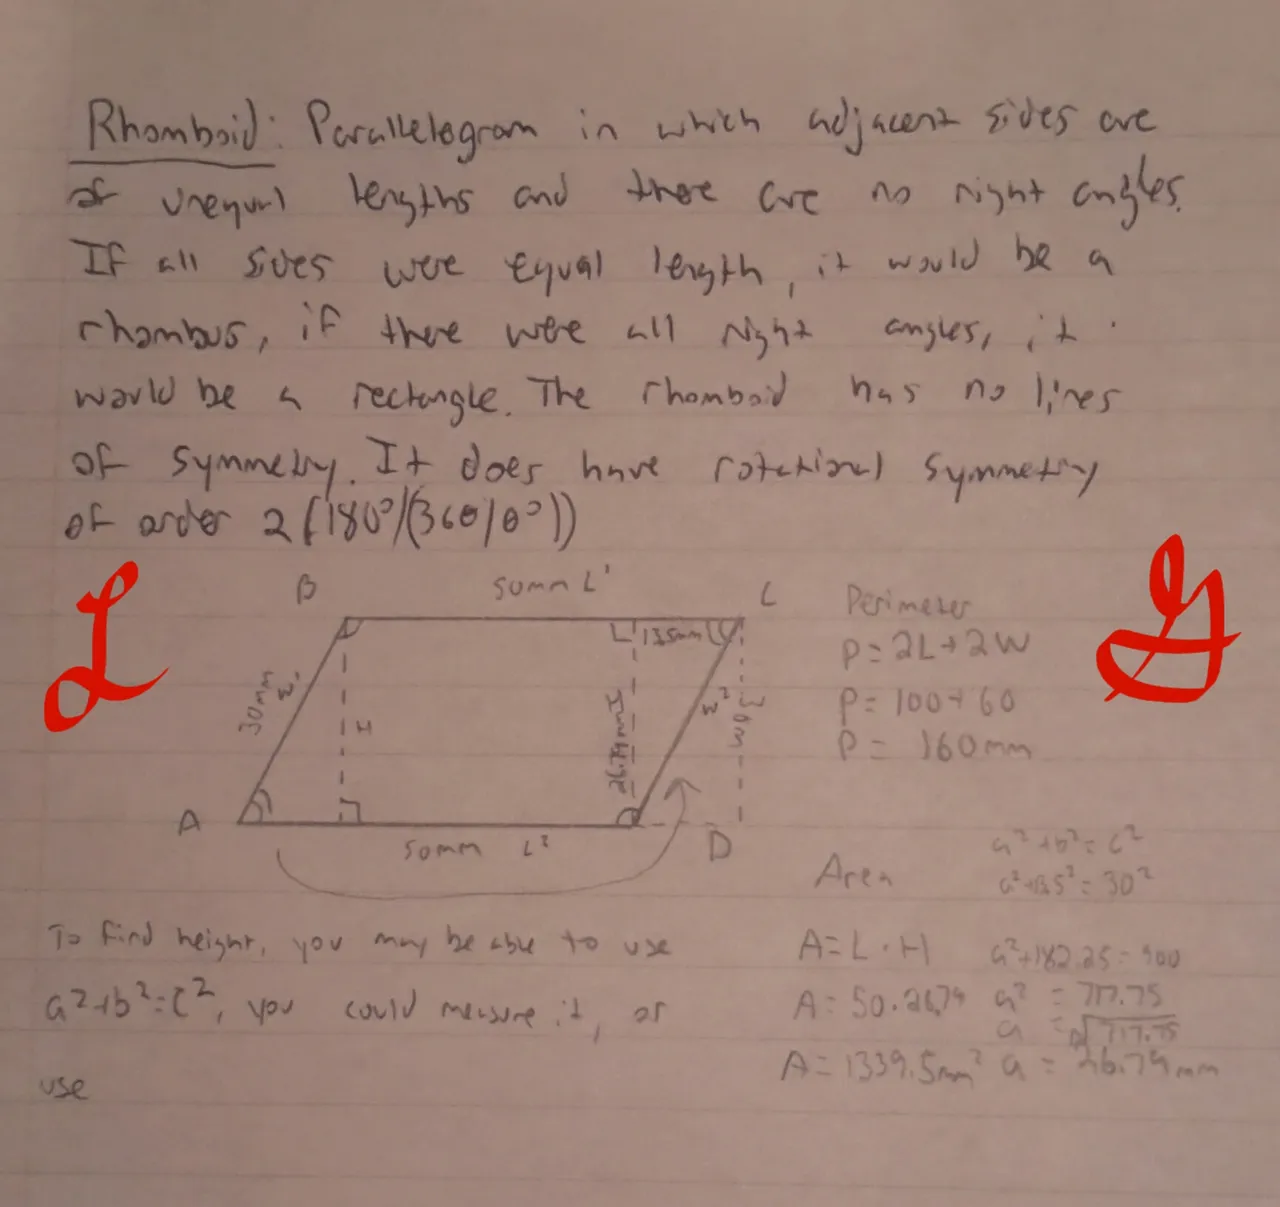 Rhomboid: Parallelogram in which adjacent sides are
of unequal lengths and there are no right angles.
If all sides were equal length, it would be a
rhombus, if there were all right angles, it
would be a rectangle. The rhomboid has no lines
of symmetry. It does have rotational symmetry
of order 2 (180°/(360/θ°))
L
G
B
50mm L¹
C
Perimeter
P=2L+2W
P=100+60
P= 160mm
30mm
W¹
H
L
13.5mm
26.79mm
H
W²
30mm
A
50mm L²
D
Area
a²+b²=c²
a²+13.5²=30²
A=L·H
a²+182.25=900
A=50·26.79
a² = 717.75
a = √717.75
A=1339.5mm²
a = 26.79mm
To find height, you may be able to use
a²+b²=c², you could measure it, or
use